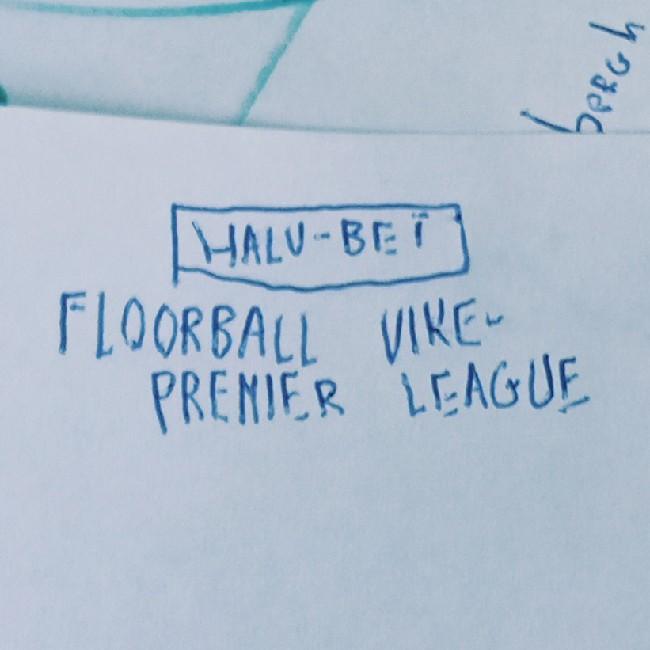 HALV-BET
FLOORBALL VIKE-
PREMIER LEAGUE